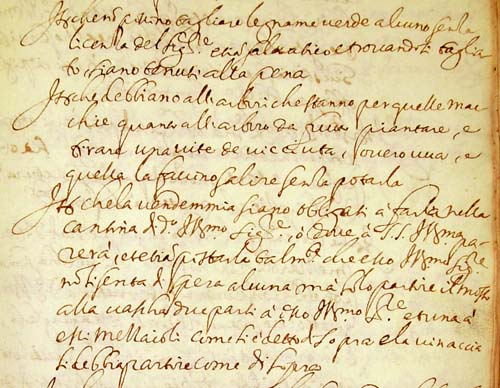 Itē che nō possino tagliare legname verde alcuno senza
licenza del Sigr.e et trovandosi taglia
to siano tenuti alla pena
Itē che debbiano all'arbori che stanno per quelle mac
chie quanti all'arbero da piantare, e
tirare una vite de vic, overo uva, e
quella faccino salire senza potarla
Itē che la vendemmia siano obligati à farla nella
cantina di d.o Ill.mo Sig.re, ò dove à S.S. Ill.ma pa
rerà, et portarla talm.te che esso Ill.mo Sig.re
nō senta spesa alcuna mà solo partire il mosto
alla vascha due parti à esso Ill.mo Sr.e et una à
essi come si è detto di sopra e la vinaccia
si debbia partire come di sopra